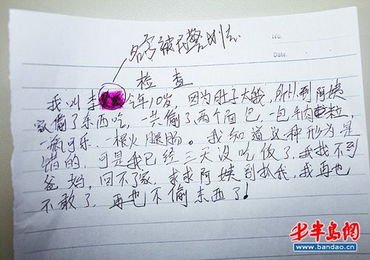 名字被民警划去
No.
Date.
检 查
我叫李 今年10岁，因为肚子太饿，所以到阿姨
家偷了东西吃，一共偷了两个面包，一包牛肉粒，
一瓶可乐，一根火腿肠。我知道这种行为是
错的，可是我已经三天没吃饭了，我找不到
爸妈，回不了家，求求阿姨别抓我，我再也
不敢了，再也不偷东西了！
半岛网
www.bandao.cn